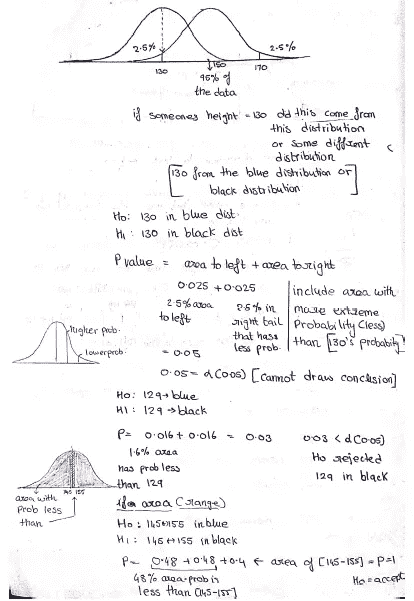 2.5%
2.5%
130
150
170
95% of
the data
if someones height = 130 did this come from
this distribution
or some diffrent
distribution
[130 from the blue distribution or
black distribution]
H0: 130 in blue dist.
H1: 130 in black dist
P value = area to left + area to right
0.025 + 0.025
2.5% area
to left
2.5% in
right tail
that has
less prob.
include area with
more extreme
Probability (less)
than [130's probabity]
higher prob.
lower prob.
= 0.05
0.05 = α (0.05) [cannot draw conclusion]
H0: 129 → blue
H1: 129 → black
P = 0.016 + 0.016 = 0.03
0.03 < α (0.05)
1.6% area
has prob less
than 129
H0 rejected
129 in black
145 155
area with
prob less
than
if for area (range)
H0: 145↔155 in blue
H1: 145↔155 in black
P = 0.48 + 0.48 + 0.4 ← area of [145-155] = P = 1
48% area prob is
less than [145-155]
H0 = accept